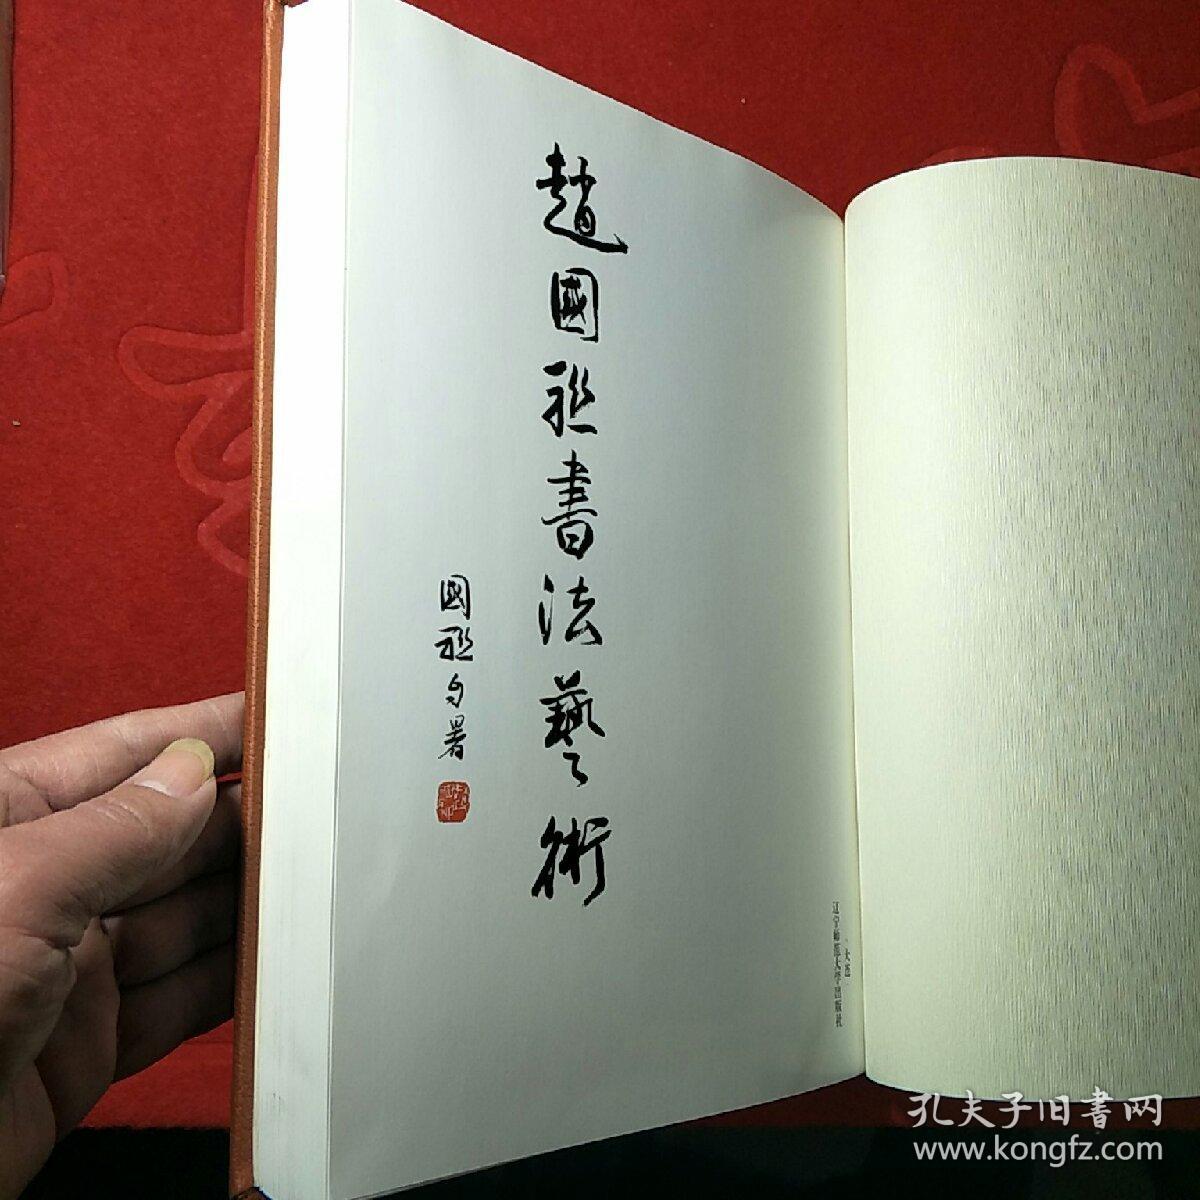 趙國書法藝術
國自署
大连
辽宁师范大学出版社
孔夫子旧書网
www.kongfz.com